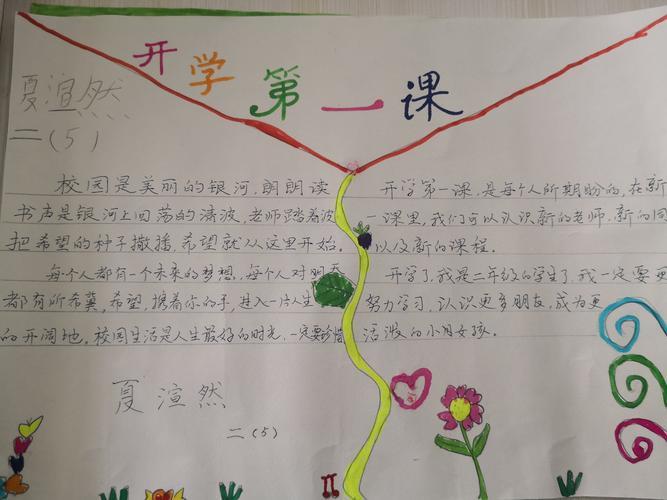 开学第一课
夏渲然
二(5)
校园是美丽的银河,朗朗读
书声是银河上回荡的清波,老师踏着波
把希望的种子撒播,希望就从这里开始。
每个人都有一个未来的梦想,每个人对明天
都有所希冀,希望,携着你的手,进入一片人生
的开阔地。校园生活是人生最好的时光,一定要珍惜
夏渲然
二(5)
开学第一课,是每个人所期盼的,在新
一课里,我们可以认识新的老师,新的同
以及新的课程。
开学了,我是二年级的学生了,我一定要更
努力学习,认识更多朋友,成为更
活泼的小女孩。